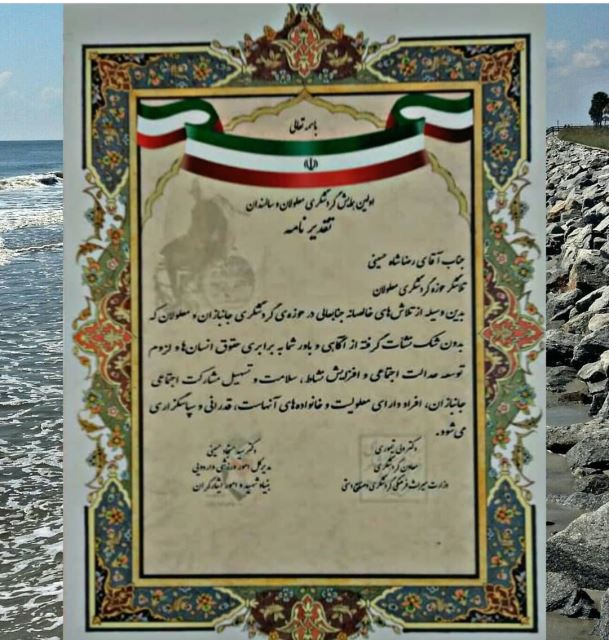 باسمه تعالی
اولین همایش گردشگری معلولان و سالمندان
تقدیر نامه
جناب آقای رضا شاه حسینی
تلاشگر حوزه گردشگری معلولان
بدین وسیله از تلاش‌های خالصانه جنابعالی در حوزه‌ی گردشگری جانبازان و معلولان که
بدون شک نشات گرفته از آگاهی و باور شما به برابری حقوق انسان‌ها و لزوم
توسعه عدالت اجتماعی و افزایش نشاط، سلامت و تسهیل مشارکت اجتماعی
جانبازان، افراد دارای معلولیت و خانواده‌های آنهاست، قدردانی و سپاسگزاری
می‌شود.
دکتر ولی تیموری
معاون گردشگری
وزارت میراث فرهنگی گردشگری و صنایع دستی
دکتر سید سجاد حسینی
مدیرکل امور ورزشی
بنیاد شهید و امور ایثارگران